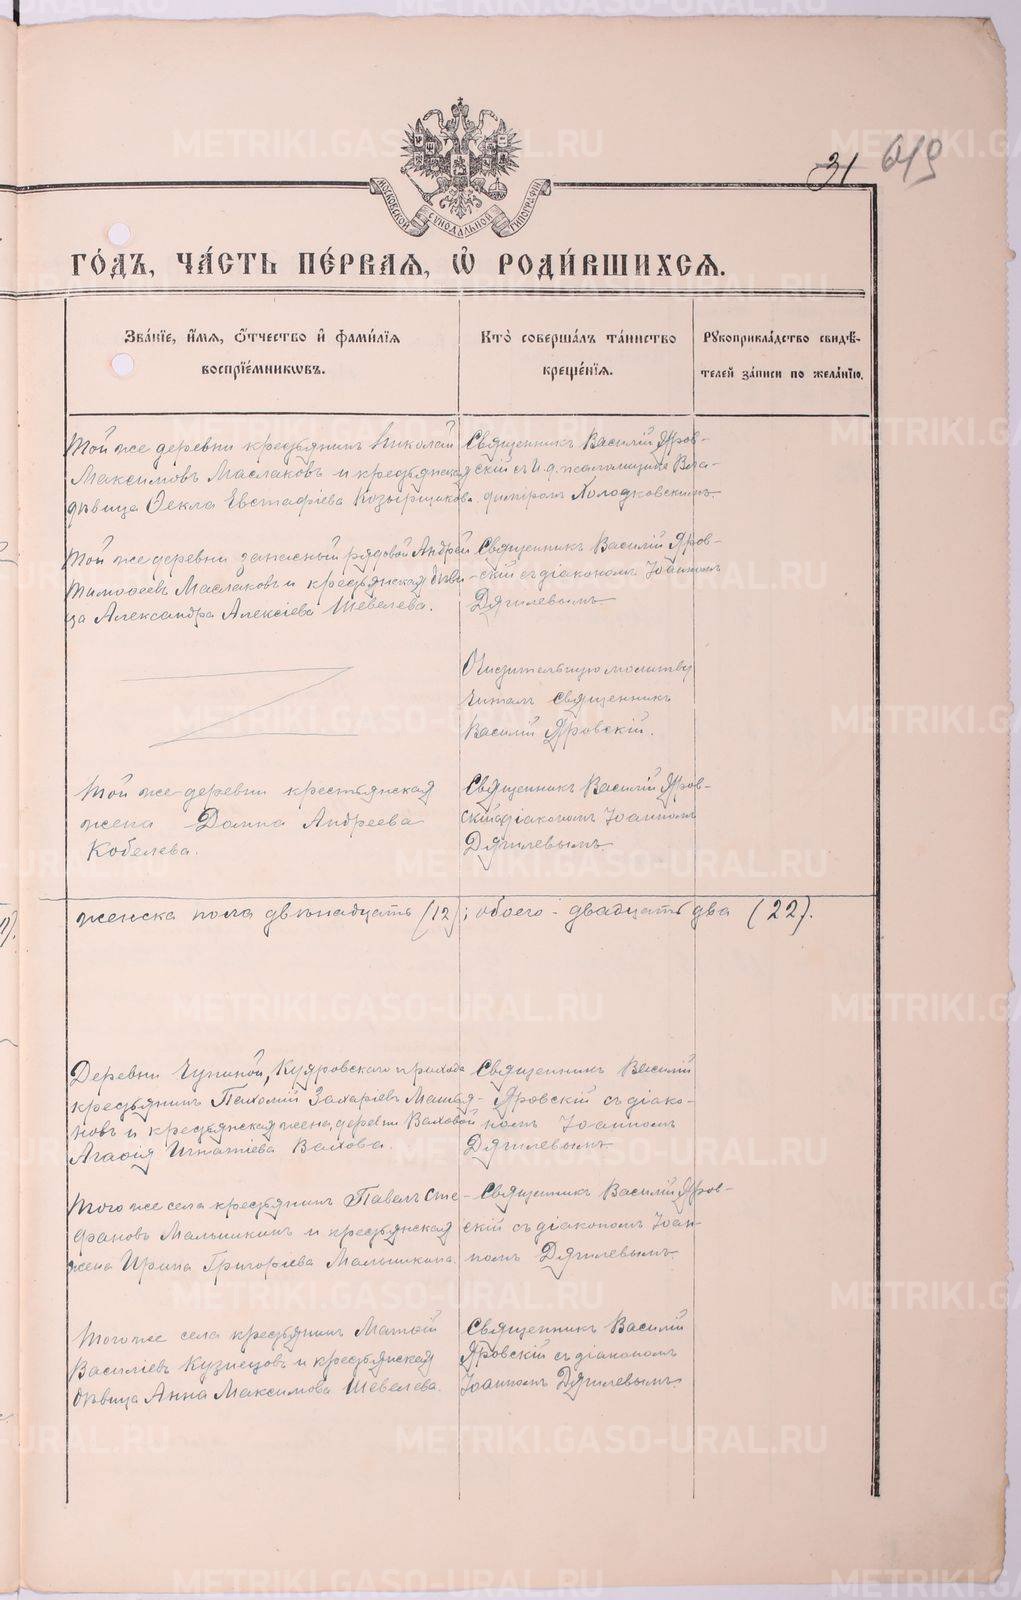 31 619
МОСКОВСКОЙ СѴНОДАЛЬНОЙ ТИПОГРАФІИ
ГО́ДЪ, ЧА́СТЬ ПЕ́РВАЯ, Ѽ РОДИ́ВШИХСЯ.
Зва́нїе, и҆́мя, ѻ҆́тчество и҆ фами́лїя
воспрїе́мниковъ.
Кто̀ соверша́лъ та́инство
креще́нїя.
Рукоприкла́дство свидѣ́-
телей за́писи по жела́нїю.
Той же деревни крестьянинъ Николай
Максимовъ Маслаковъ и крестьянская
дѣвица Ѳекла Евстафіева Козырщикова.
Священникъ Василій Яров-
скій съ и.д. псаломщика Вла-
диміромъ Холодковскимъ
Той же деревни запасный рядовой Андрей
Тимоѳеевъ Маслаковъ и крестьянская дѣви-
ца Александра Алексіева Шевелева.
Священникъ Василій Яров-
скій съ діакономъ Іоанномъ
Дягилевымъ
Очистительную молитву
читалъ священникъ
Василій Яровскій.
Той же деревни крестьянская
жена Домна Андреева
Кобелева.
Священникъ Василій Яров-
скій съ діакономъ Іоанномъ
Дягилевымъ
женска пола двѣнадцать (12); обоего - двадцать два (22).
Деревни Чупиной, Куяровскаго прихода
крестьянинъ Пахомій Захаріевъ
и крестьянская жена деревни Валовой
Агафія Игнатіева Валова.
Священникъ Василій
Яровскій съ діако-
номъ Іоанномъ
Дягилевымъ
Того же села крестьянинъ Павелъ Сте-
фановъ Мальшкинъ и крестьянская
жена Ирина Григоріева Мальшкина.
Священникъ Василій Яров-
скій съ діакономъ Іоан-
номъ Дягилевымъ
Того же села крестьянинъ Матѳій
Василіевъ Кузнецовъ и крестьянская
дѣвица Анна Максимова Шевелева.
Священникъ Василій
Яровскій съ діакономъ
Іоанномъ Дягилевымъ
METRIKI.GASO-URAL.RU